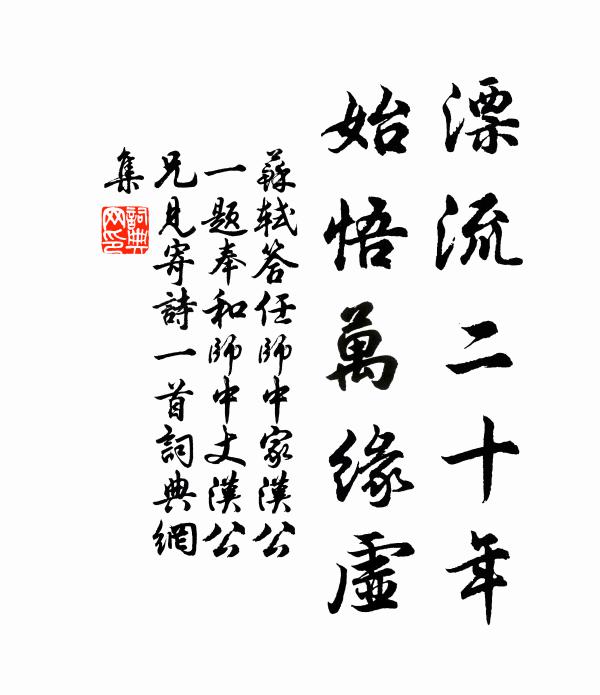 漂流二十年
始悟萬緣虛
蘇軾答任師中家漢公
一題奉和師中丈漢公
兄見寄詩一首詞典網
集
詞典
网印